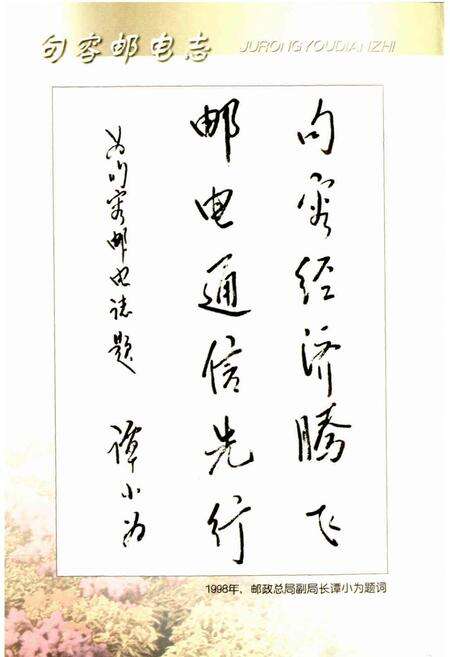 句容邮电志 JURONGYOUDIANZHI
句容经济腾飞
邮电通信先行
为句容邮电志题
谭小为
1998年，邮政总局副局长谭小为题词